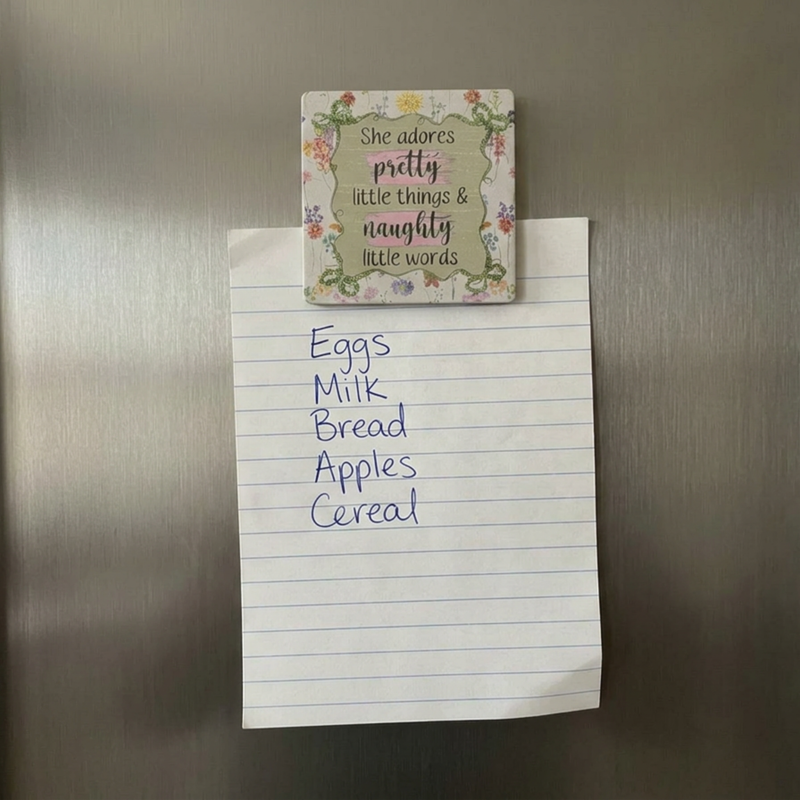 She adores
pretty
little things &
naughty
little words
Eggs
Milk
Bread
Apples
Cereal